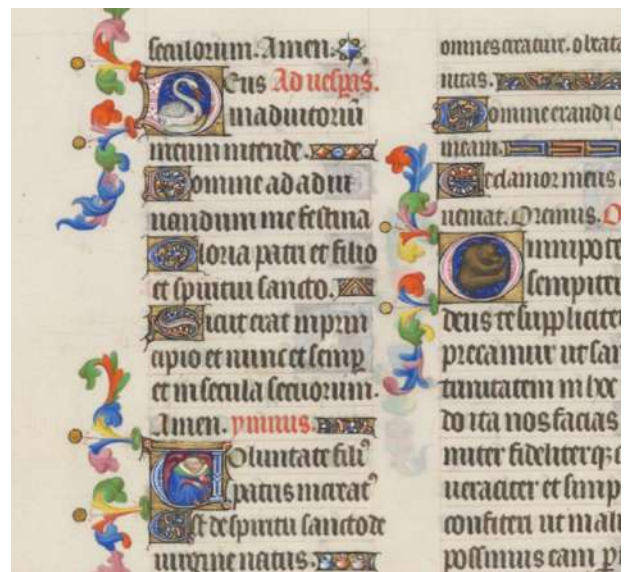 seculorum. Amen.
Deus Ad uesp̄is.
in adiutoriū
meum intende.
Domine ad adiu
uandum me festina
Gloria patri et filio
et spiritui sancto.
Sicut erat in prin
cipio et nunc et semp
et in secula seculorum.
Amen. ymnus.
Uoluntate filiꝰ
patris increatꝰ
Est de spiritu sancto de
uirgine natus.
omnes creatur. o beata
nitas.
Domine exaudi o
meam.
Et clamor meus a
ueniat. Oremus. O
Omnipote
sempiter
deus te supplicite
precamur ut san
trinitatem in hoc
do ita nos facias
miter fideliterqꝫ
ueraciter et simp
confiteri ut mali
possimus eam